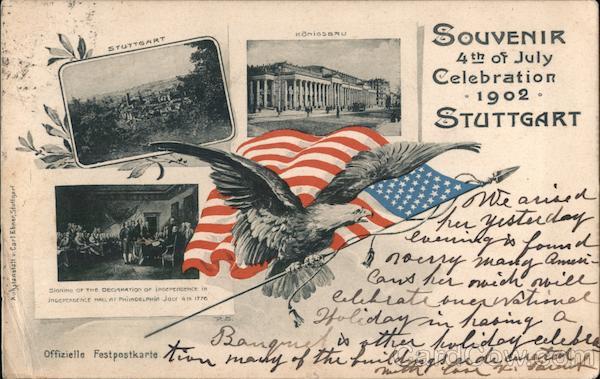 STUTTGART
KÖNIGSBAU
SOUVENIR
4th of July
Celebration
· 1902 ·
STUTTGART
SIGNING OF THE DECLARATION OF INDEPENDENCE IN
INDEPENDENCE HALL AT PHILADELPHIA JULY 4th 1776.
Offizielle Festpostkarte
Kunstanstalt v. Carl Ebner, Stuttgart
We arised
her yesterday
evening is found
verry many Ameri
cans her wich will
celebrate our national
Holiday in having a
Banquet is other holiday celebra
tion many of the buildings
with love
CardCow.com